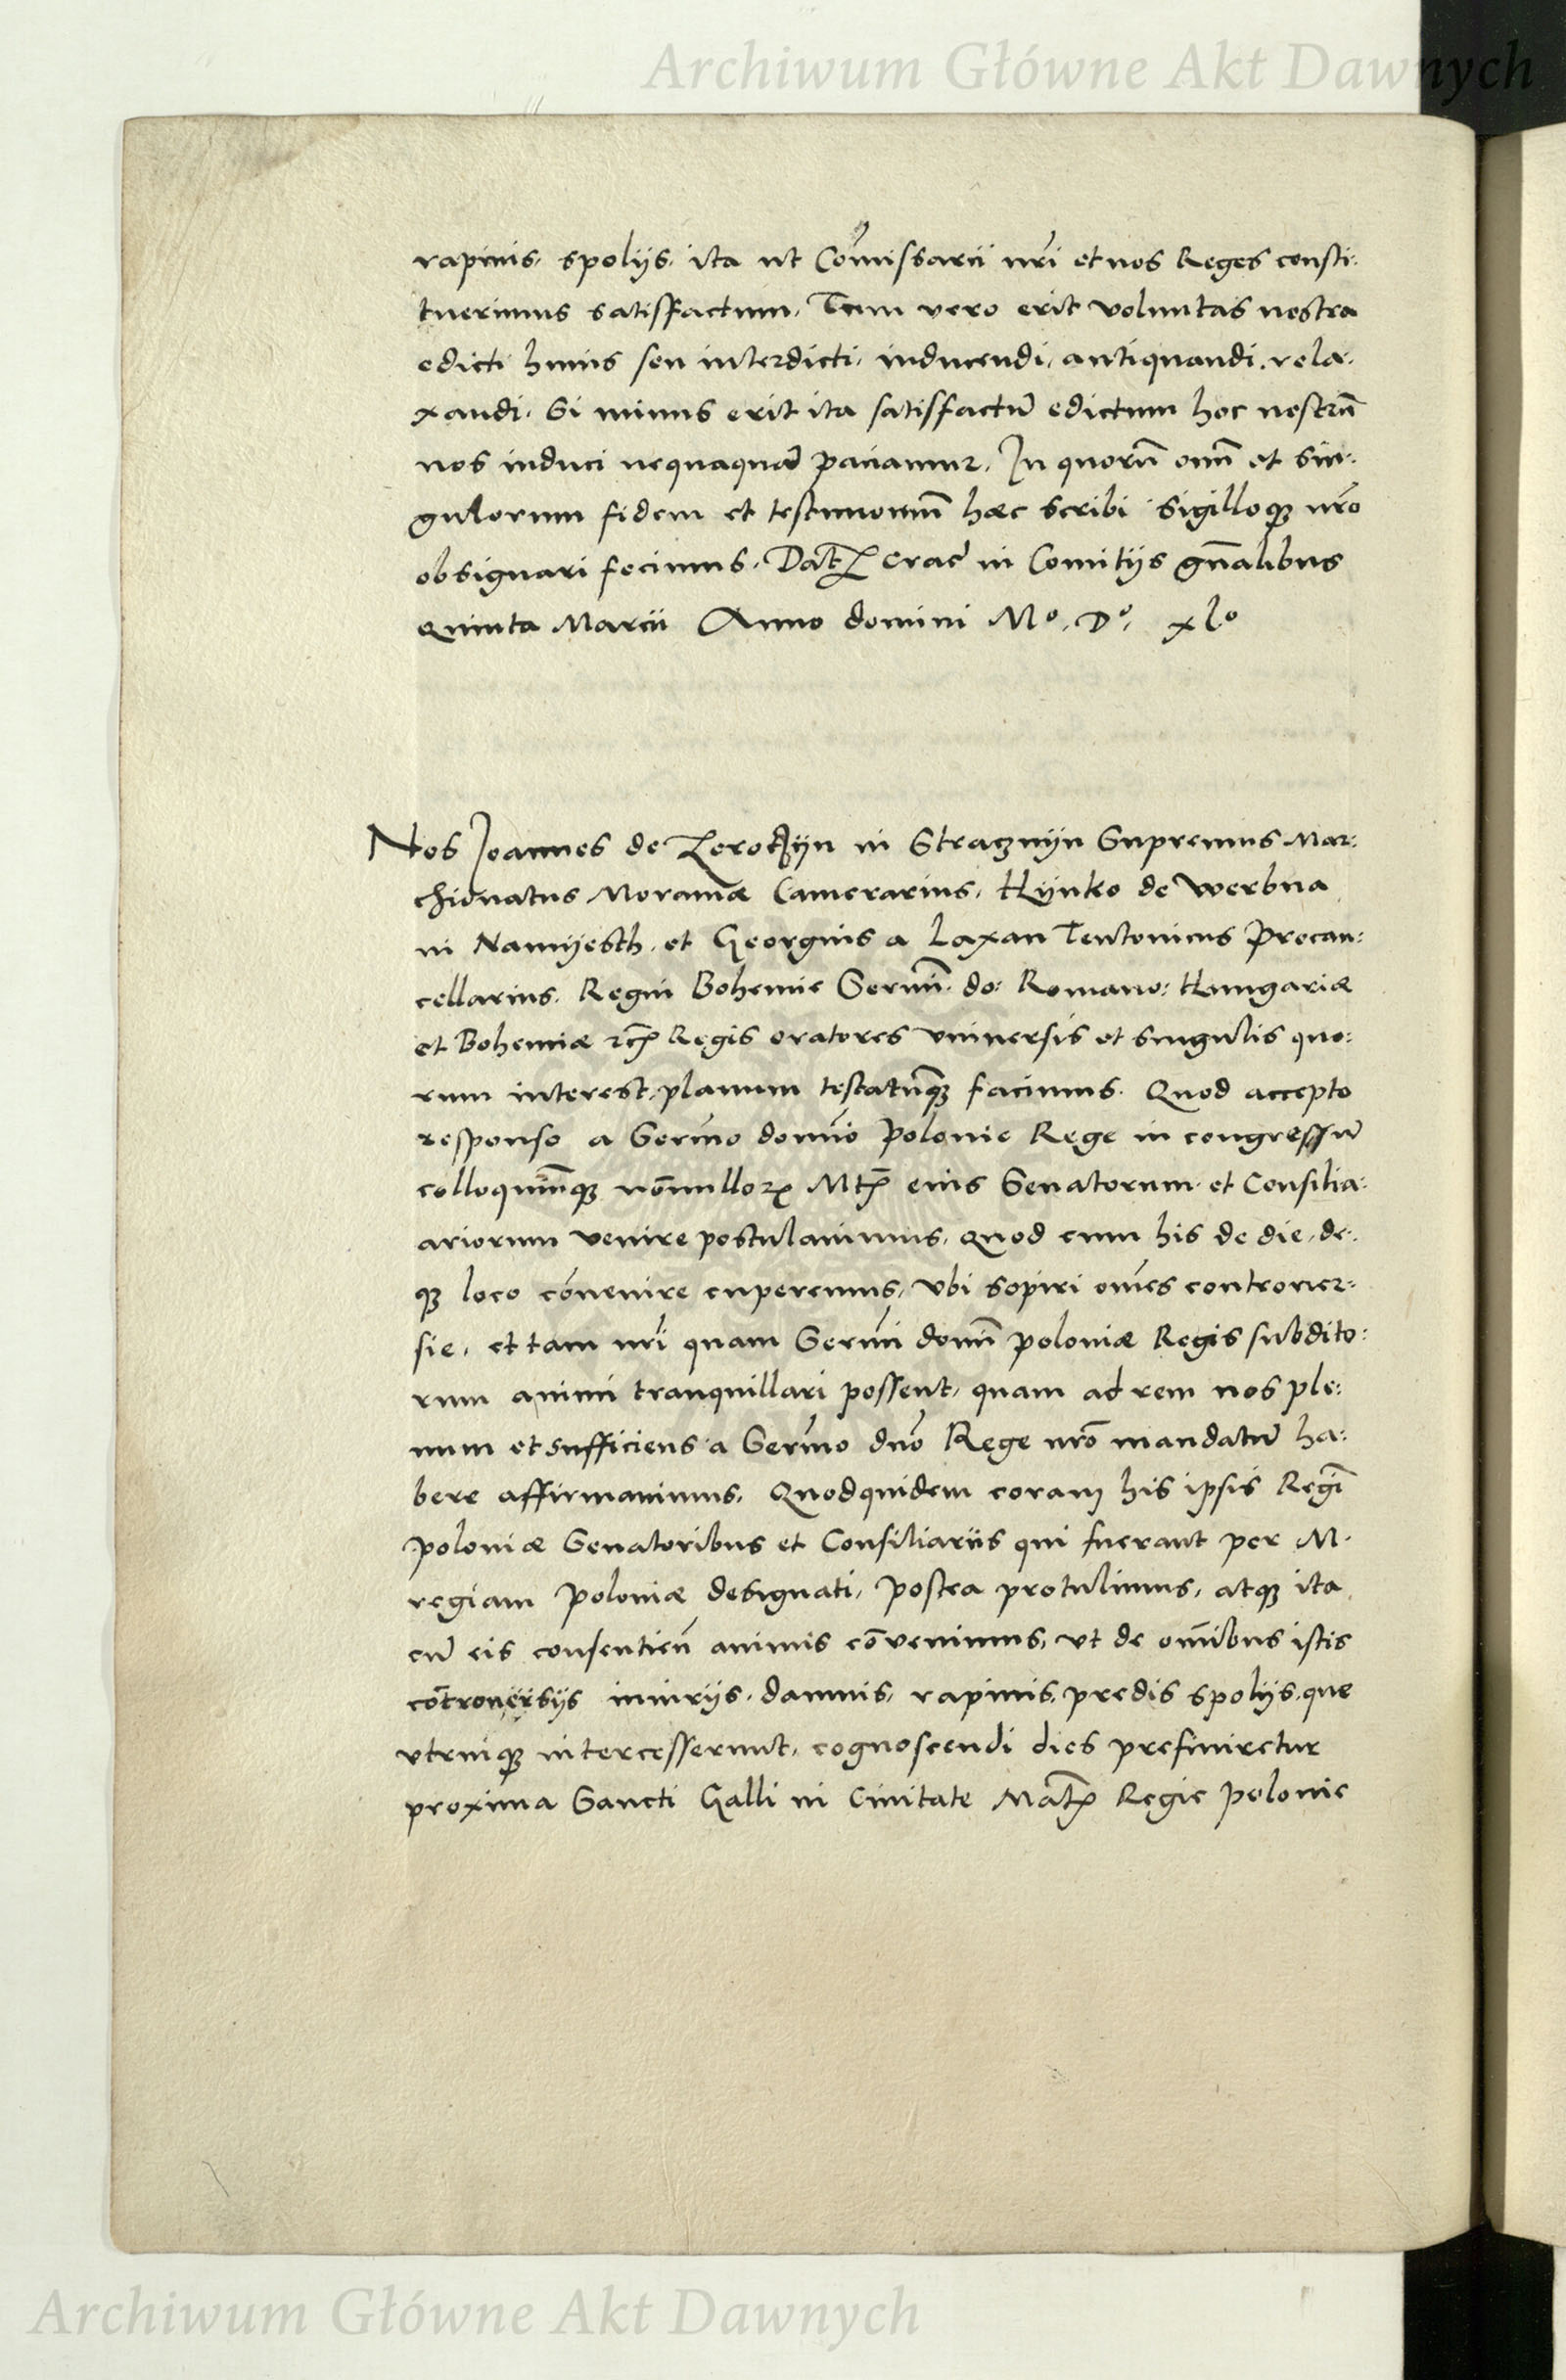 Archiwum Główne Akt Dawnych
rapinis, spolijs, ita ut Com̃issarii nr̃i et nos Reges consti:
tuerimus satisfactum, Tum vero erit voluntas nostra
edicti huius seu interdicti, inducendi, antiquandi, rela:
xandi. Si minus erit ita satisfactũ edictum hoc nostrũ
nos induci nequaquã patiamur. In quorũ om̃ et sin:
gulorum fidem et testimoniũ hæc scribi sigilloqꝫ nr̃o
obsignari fecimus. Dat̃ Crac̃ in Comitijs gñalibus
Quinta Marcii Anno domini Mᵒ. Dᵒ. xlᵒ
Nos Joannes de Zerotijn in Stracznijn Supremus Mar:
chionatus Moraviæ Camerarius, Hijnko de Werbna
in Namijesth, et Georgius a Laxan Teutonicus Procan:
cellarius, Regni Bohemie Sermĩ do: Romano: Hungariæ
et Bohemiæ ꝛc̃ Regis oratores vniuersis et singulis quo:
rum interest, planum testatũqꝫ facimus. Quod accepto
responso a Serm̃o domĩo Polonie Rege in congressũ
colloquiũqꝫ nõnulloꝝ Mt̃ꝭ eius Senatorum et Consilia:
ariorum venire postulauimus, quod cum his de die, de:
qꝫ loco cõuenire cuperemus, vbi sopiri om̃es controuer:
sie, et tam nr̃i quam Serm̃i domĩ Poloniæ Regis subdito:
rum animi tranquillari possent, quam ad rem nos ple:
num et sufficiens a Serm̃o dño Rege nr̃o mandatũ ha:
bere affirmauimus, Quodquidem coram his ipsis Regĩ
Poloniæ Senatoribus et Consiliariis qui fuerant per M.
regiam Poloniæ designati, postea protulimus, atqꝫ ita
cũ eis consentieñ animis cõvenimus, vt de om̃ibus istis
cõtrouersijs iniurijs, damnis, rapinis, predis spolijs, que
vtrinqꝫ intercesserunt, cognoscendi dies prefiniretur
proxima Sancti Galli in Ciuitate Mat̃ꝭ Regie Polonie
Archiwum Główne Akt Dawnych